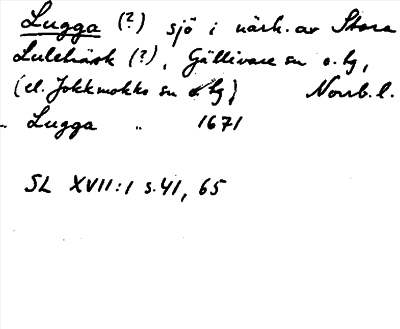 Lugga (?) sjö i närh. av Stora
Luleträsk (?), Gällivare sn o. hg,
(el. Jokkmokks sn o. hg) Norrb. l.
„ Lugga „ 1671
SL XVII:1 s. 41, 65